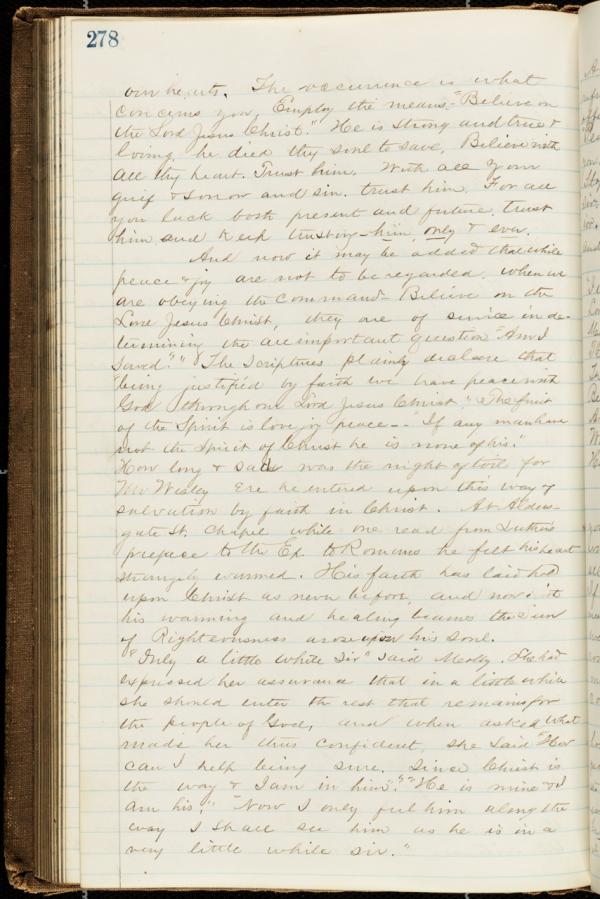 278
our hearts. The occurrence is what
concerns you, Employ the means- "Believe on
the Lord Jesus Christ." He is strong and true &
loving, he died thy soul to save, Believe with
all thy heart. Trust him. With all your
grief & sorrow and sin. trust him. For all
you lack both present and future, trust
him and keep trusting - him only & ever.
And now it may be added that while
peace & joy are not to be regarded, when we
are obeying the command - Believe on the
Lord Jesus Christ, they are of service in de-
termining the all important question "Am I
saved?" "The Scriptures plainly declare that
"being justified by faith we have peace with
God through our Lord Jesus Christ." "The fruit
of the Spirit is love joy peace -" "If any man have
not the Spirit of Christ he is none of his."
How long & sad was the night of toil for
Mr Wesley Ere he entered upon this way of
salvation by faith in Christ. At Alders-
gate St. Chapel while one read from Luthers
preface to the Ep. to Romans he felt his heart
strangely warmed. His faith has laid hold
upon Christ as never before, and now with
his warming and healing beames the Sun
of Righteousness arose upon his soul.
"Only a little while Sir" said Molly. She had
expressed her assurance that in a little while
she should enter the rest that remains for
the people of God, and when asked what
made her thus confident, she said "How
can I help being sure, since Christ is
the way & I am in him"." "He is mine & I
am his." "Now I only feel him along the
way I shall see him as he is in a
very little while sir."